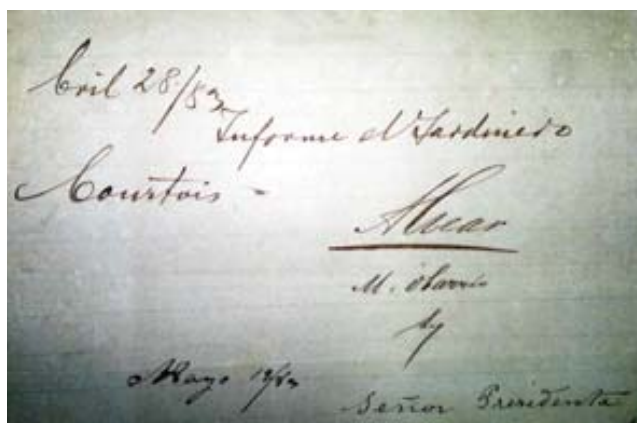 Abril 28/83
Informe el Jardinero
Courtois -
Alvear
M.
Mayo
Señor Presidente